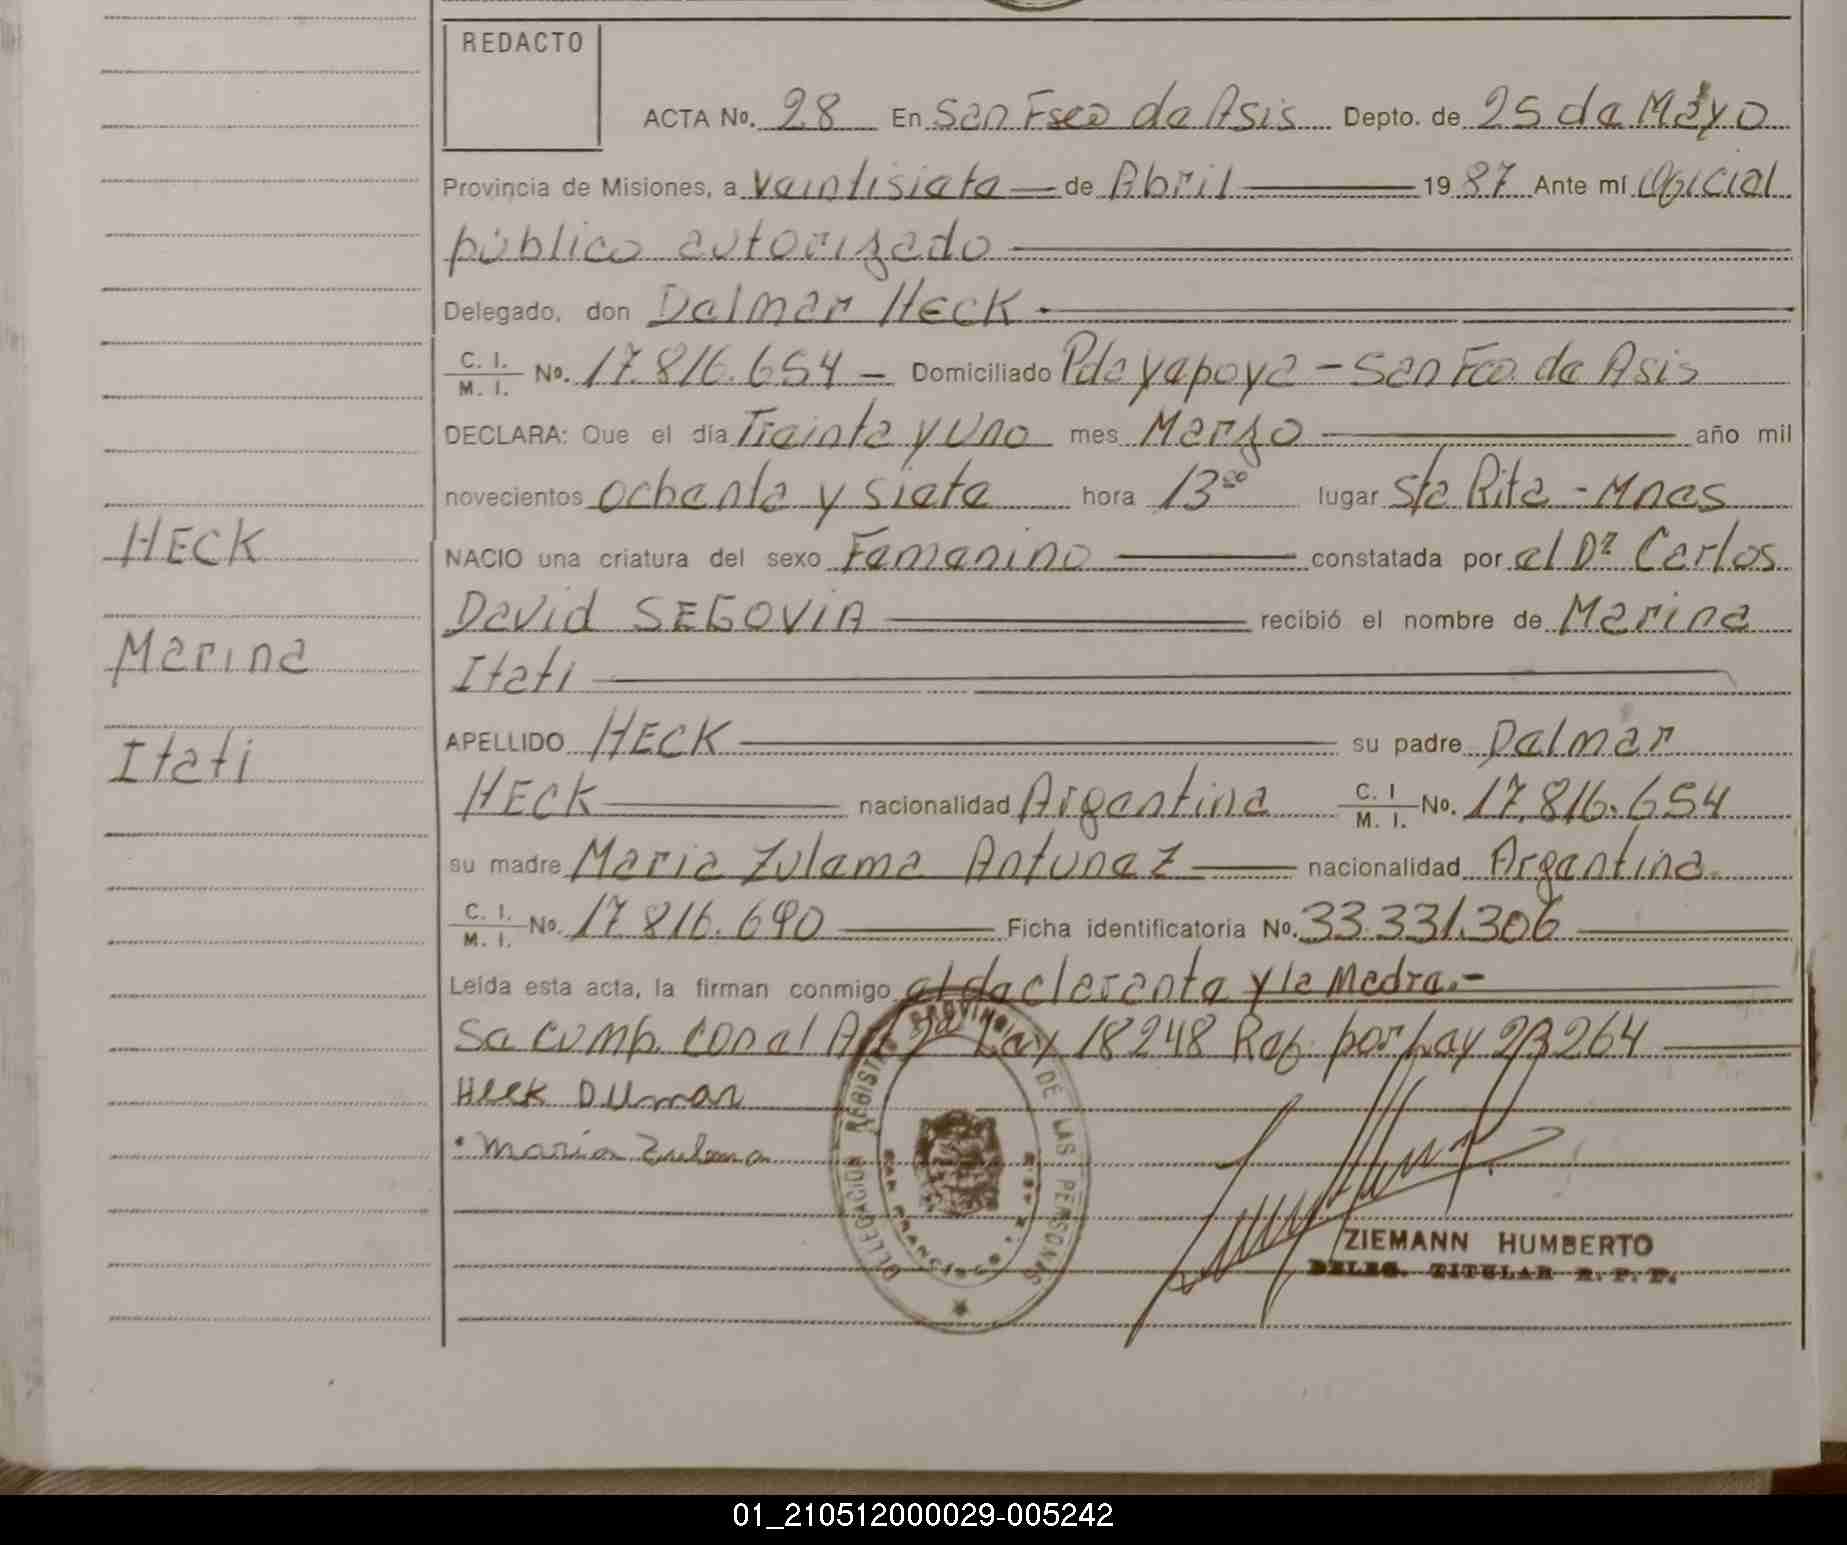 REDACTO
ACTA No. 28 En San Fsco de Asis Depto. de 25 de Mayo
Provincia de Misiones, a veintisiete de Abril 1987 Ante mí Oficial
público autorizado
Delegado, don Delmar Heck
C. I. / M. I. No. 17.816.654 - Domiciliado Pde Yapoya - San Fco. de Asis
DECLARA: Que el día Treinta y Uno mes Marzo año mil
novecientos ochenta y siete hora 13 00 lugar Sta Rita - Mnes
HECK
NACIO una criatura del sexo Femenino constatada por el Dr Carlos
David SEGOVIA recibió el nombre de Marina
Marina
Itati
APELLIDO HECK su padre Delmar
Itati
HECK nacionalidad Argentina C. I / M. I. No. 17.816.654
su madre Maria Zulema Antunez nacionalidad Argentina.
C. I. / M. I. No. 17 816.690 Ficha identificatoria No. 33.331.306
Leída esta acta, la firman conmigo el declarante y la Madre.-
Se cump. con el Art 2º Ley 18248 Ref. por Ley 23264
Heck Dilmar
Maria Zulema
DELEGACION REGISTRO PROVINCIAL DE LAS PERSONAS
SAN FRANCISCO DE ASIS
ZIEMANN HUMBERTO
DELEG. TITULAR R. P. P.
01_210512000029-005242